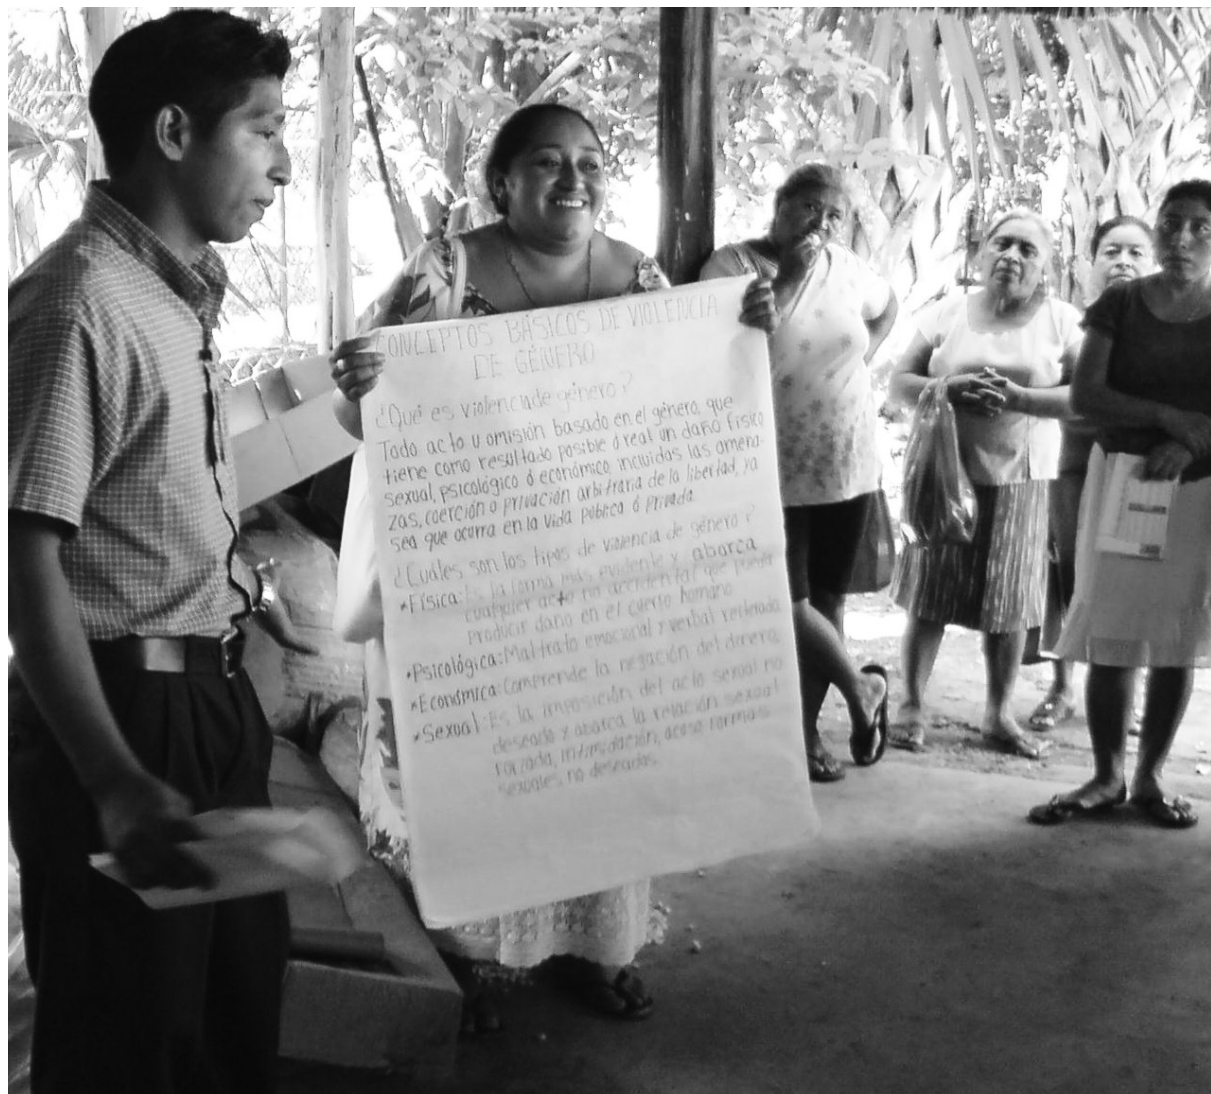 CONCEPTOS BÁSICOS DE VIOLENCIA
DE GÉNERO
¿Qué es violencia de género?
Todo acto u omisión basado en el género, que
tiene como resultado posible ó real un daño físico
sexual, psicológico ó económico, incluidas las amena-
zas, coerción o privación arbitraria de la libertad, ya
sea que ocurra en la vida pública ó privada.
¿Cuáles son los tipos de violencia de género?
*Física: Es la forma más evidente y abarca
cualquier acto no accidental que pueda
producir daño en el cuerpo humano
*Psicológica: Maltrato emocional y verbal reiterado
*Económica: Comprende la negación del dinero,
*Sexual: Es la imposición del acto sexual no
deseado y abarca la relación sexual
forzada, intimidación, acoso formas
sexuales no deseadas.